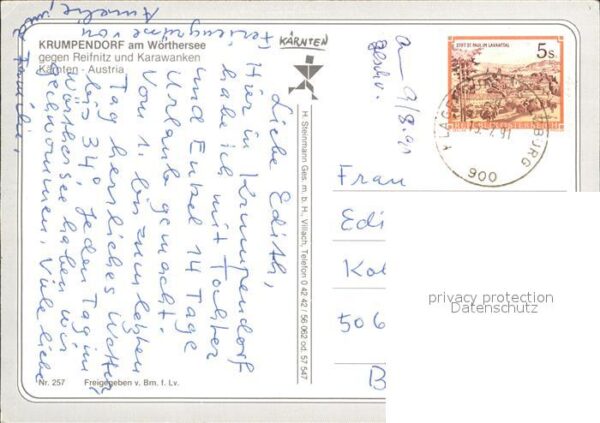 KRUMPENDORF am Wörthersee
gegen Reifnitz und Karawanken
Kärnten - Austria
KÄRNTEN
Liebe Edith,
Hier in Krumpendorf
habe ich mit Tochter
und Enkel 14 Tage
Urlaub gemacht.
Vom 1. bis zum letzten
Tag herrliches Wetter
bis 34°. Jeden Tag im
Wörthersee haben wir
geschwommen. Viele liebe
Feriengrüße von
Annelie und
Familie
H. Steinmann Ges. m. b. H., Villach, Telefon 0 42 42 / 56 062 od. 57 547
Nr. 257
Freigegeben v. Bm. f. Lv.
STIFT ST. PAUL IM LAVANTTAL
5s
KLAG
900
Frau
Edi
Kol
506
B
privacy protection
Datenschutz